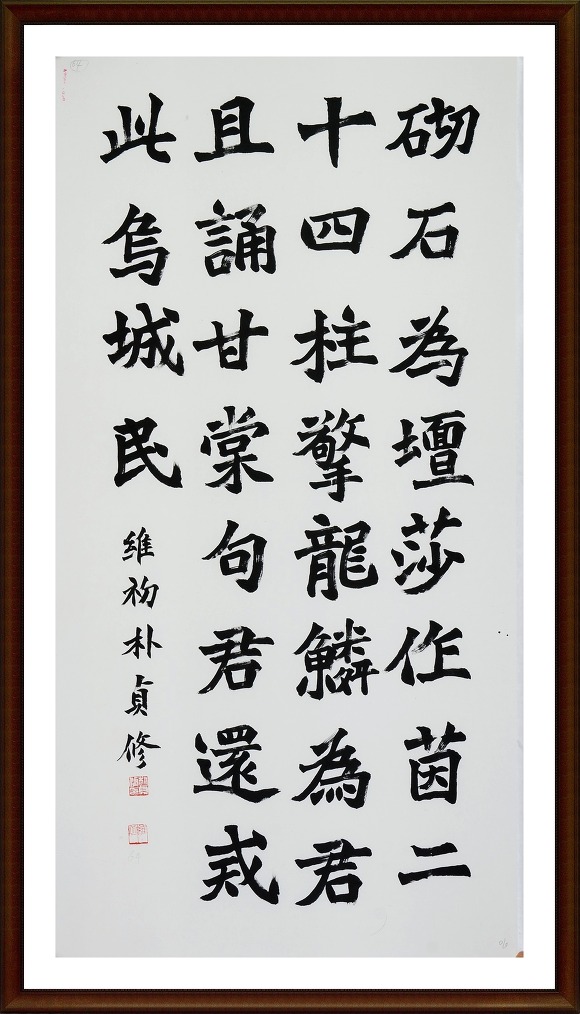 砌石為壇莎作茵二
十四柱擎龍鱗為君
且誦甘棠句君還
此烏城民
維初朴貞修